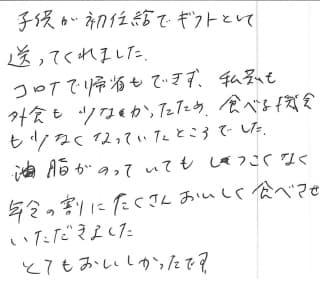 子供が初任給でギフトとして
送ってくれました。
コロナで帰省もできず、私共も
外食も少なかったため、食べる機会
も少なくなっていたところでした。
油脂がのっていてもしつこくなく
年令の割にたくさんおいしく食べさせ
いただきました
とてもおいしかったです